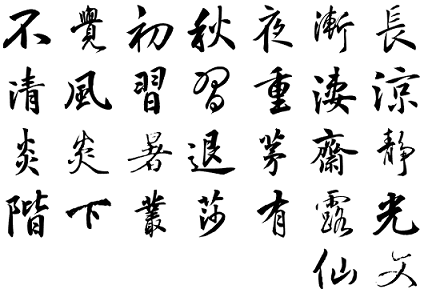 不覺初秋夜漸長
清風習習重淒涼
炎炎暑退茅齋靜
階下叢莎有露光
仙文